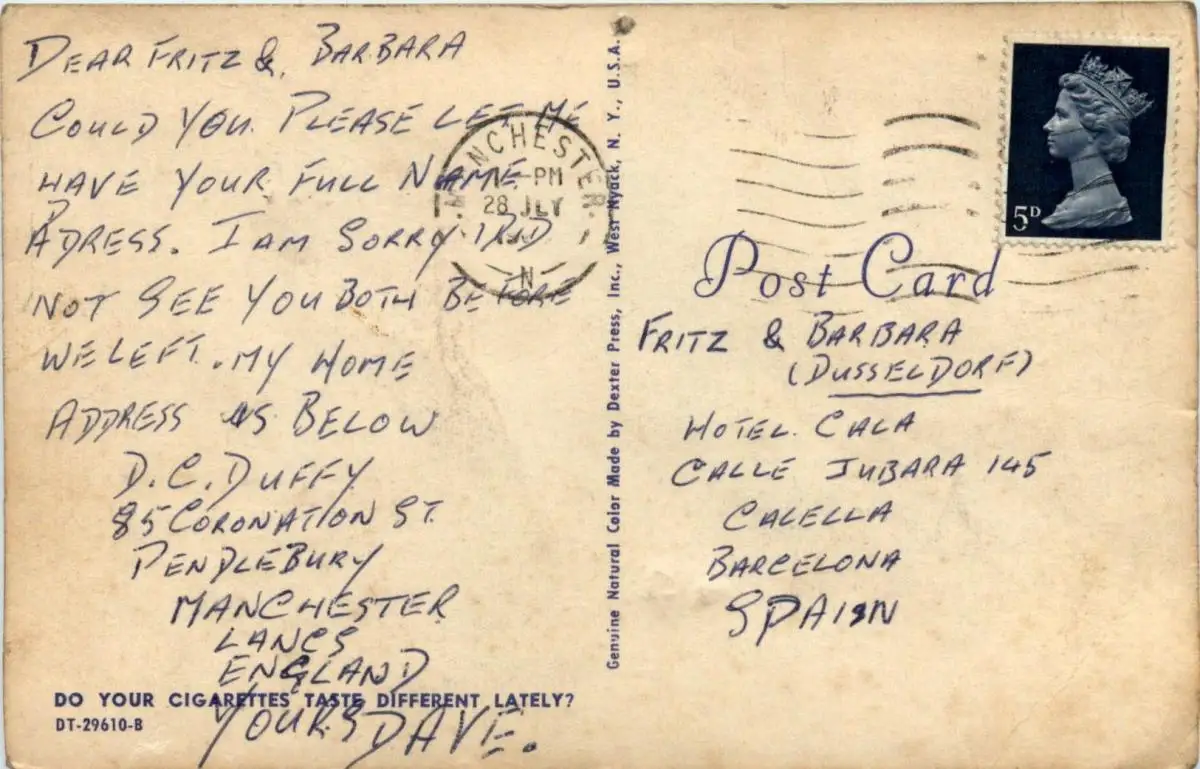 DEAR FRITZ & BARBARA
COULD YOU PLEASE LET ME
HAVE YOUR FULL NAME
ADRESS. I AM SORRY I DID
NOT SEE YOU BOTH BEFORE
WE LEFT. MY HOME
ADDRESS IS BELOW
D.C. DUFFY
85 CORONATION ST.
PENDLEBURY
MANCHESTER
LANCS
ENGLAND
YOURS DAVE.
DO YOUR CIGARETTES TASTE DIFFERENT LATELY?
DT-29610-B
MANCHESTER
PM
28 JLY
N
Genuine Natural Color Made by Dexter Press, Inc., West Nyack, N. Y., U.S.A.
5D
Post Card
FRITZ & BARBARA
(DUSSELDORF)
HOTEL. CALA
CALLE JUBARA 145
CALELLA
BARCELONA
SPAIN